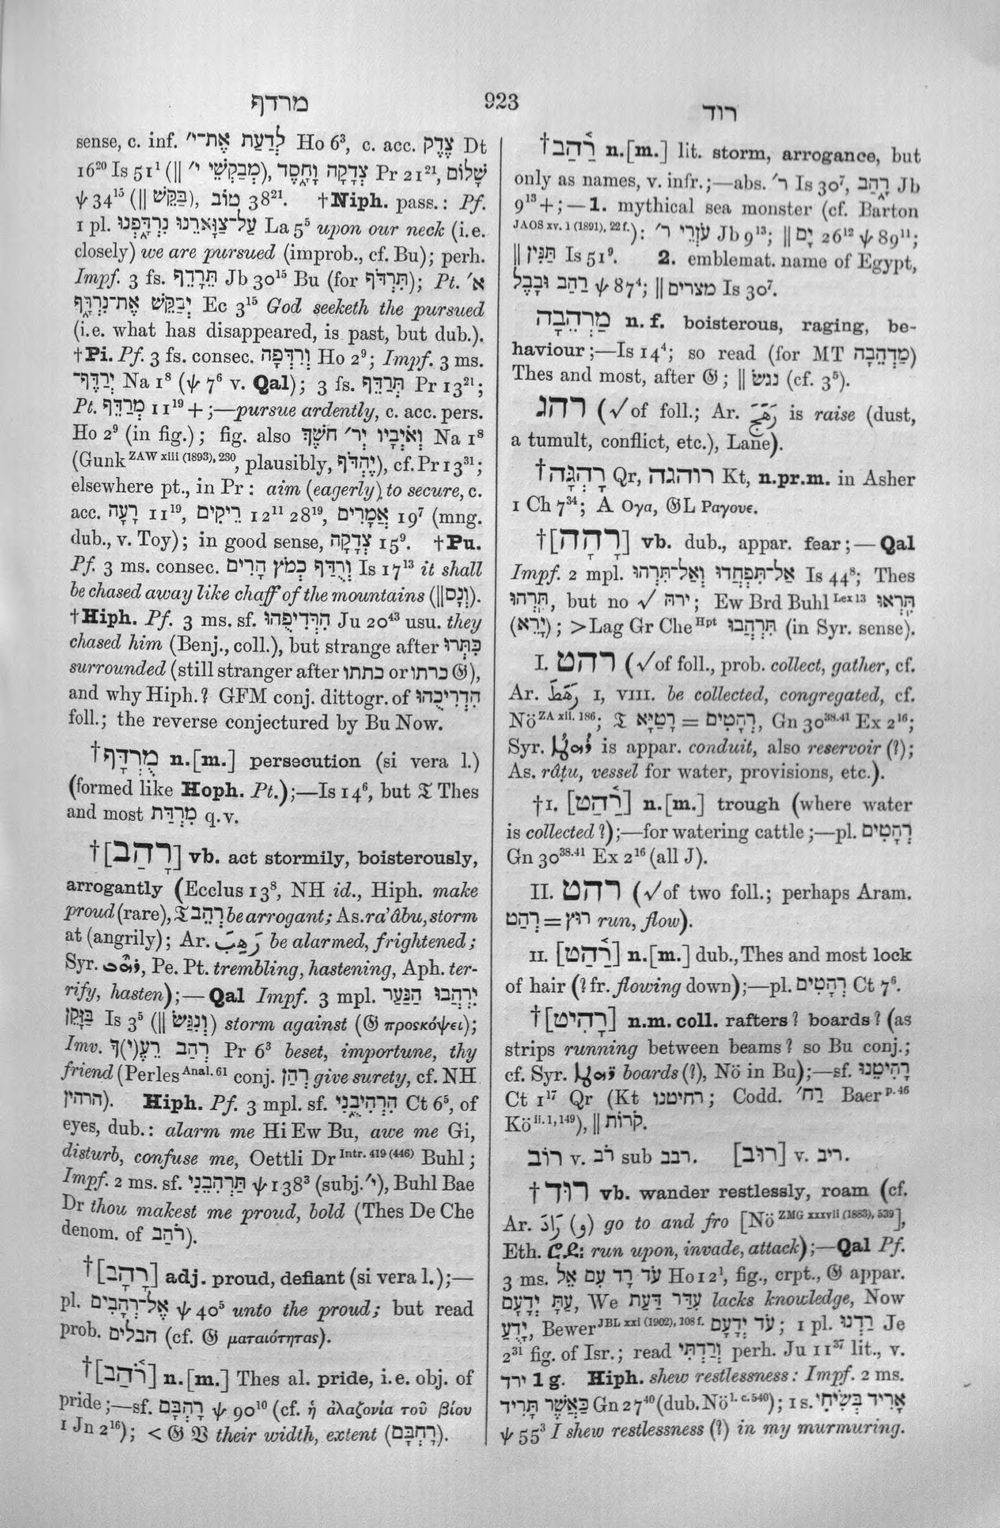 מרדף
923
רוד
sense, c. inf. לְדַעַת אֶת־יי׳ Ho 6³, c. acc. צֶדֶק Dt
16²⁰ Is 51¹ (|| מְבַקְשֵׁי י׳), צְדָקָה וָחֶסֶד Pr 21²¹, שָׁלוֹם
ψ 34¹⁵ (|| בִּקֵּשׁ), טוֹב 38²¹. †Niph. pass.: Pf.
1 pl. עַל־צַוָּארֵנוּ נִרְדָּפְנוּ La 5⁵ upon our neck (i.e.
closely) we are pursued (improb., cf. Bu); perh.
Impf. 3 fs. תֵּרָדֵף Jb 30¹⁵ Bu (for תִּרְדֹּף); Pt. א׳
יְבַקֵּשׁ אֶת־נִרְדָּף Ec 3¹⁵ God seeketh the pursued
(i.e. what has disappeared, is past, but dub.).
†Pi. Pf. 3 fs. consec. וְרִדְּפָה Ho 2⁹; Impf. 3 ms.
יְרַדֶּף־ Na 1⁸ (ψ 7⁶ v. Qal); 3 fs. תְּרַדֵּף Pr 13²¹;
Pt. מְרַדֵּף 11¹⁹ +;—pursue ardently, c. acc. pers.
Ho 2⁹ (in fig.); fig. also וְאֹיְבָיו יְר׳ חשֶׁךְ Na 1⁸
(Gunk ZAW xiii (1893), 230, plausibly, יֶהְדֹּף), cf. Pr 13²¹;
elsewhere pt., in Pr : aim (eagerly) to secure, c.
acc. רָעָה 11¹⁹, רֵיקִים 12¹¹ 28¹⁹, אֲמָרִים 19⁷ (mng.
dub., v. Toy); in good sense, צְדָקָה 15⁹. †Pu.
Pf. 3 ms. consec. וְרֻדַּף כְּמֹץ הָרִים Is 17¹³ it shall
be chased away like chaff of the mountains (|| וְנָס).
†Hiph. Pf. 3 ms. sf. הִרְדִיפֻהוּ Ju 20⁴³ usu. they
chased him (Benj., coll.), but strange after כִּתְּרוּ
surrounded (still stranger after כתתו or כרתו 𝔊),
and why Hiph.? GFM conj. dittogr. of הִדְרִיכֻהוּ
foll.; the reverse conjectured by Bu Now.
†מֻרְדָּף n.[m.] persecution (si vera l.)
(formed like Hoph. Pt.);—Is 14⁶, but 𝔗 Thes
and most מִרְדַּת q.v.
†[רָהַב] vb. act stormily, boisterously,
arrogantly (Ecclus 13⁸, NH id., Hiph. make
proud (rare), 𝔗 רְהֵב be arrogant; As. ra'âbu, storm
at (angrily); Ar. رَهِبَ be alarmed, frightened;
Syr. ܪܗܒ, Pe. Pt. trembling, hastening, Aph. ter-
rify, hasten);—Qal Impf. 3 mpl. יִרְהֲבוּ הַנַּעַר
בַּזָּקֵן Is 3⁵ (|| וְנִגַּשׂ) storm against (𝔊 προσκόψει);
Imv. רְהַב רֵעֶ(י)ךָ Pr 6³ beset, importune, thy
friend (Perles Anal. 61 conj. רְהַן give surety, cf. NH
הרהין). Hiph. Pf. 3 mpl. sf. הִרְהִיבֻנִי Ct 6⁵, of
eyes, dub.: alarm me Hi Ew Bu, awe me Gi,
disturb, confuse me, Oettli Dr Intr. 419 (446) Buhl;
Impf. 2 ms. sf. תַּרְהִבֵנִי ψ 138³ (subj. י׳), Buhl Bae
Dr thou makest me proud, bold (Thes De Che
denom. of רֹהַב).
†[רָהָב] adj. proud, defiant (si vera l.);—
pl. אֶל־רְהָבִים ψ 40⁵ unto the proud; but read
prob. הבלים (cf. 𝔊 ματαιότητας).
†[רֹהַב] n.[m.] Thes al. pride, i.e. obj. of
pride;—sf. רָהְבָּם ψ 90¹⁰ (cf. ἡ ἀλαζονία τοῦ βίου
1 Jn 2¹⁶); < 𝔊 𝔙 their width, extent (רָחְבָּם).
†רַהַב n.[m.] lit. storm, arrogance, but
only as names, v. infr.;—abs. ר׳ Is 30⁷, רָהַב Jb
9¹³ +;—1. mythical sea monster (cf. Barton
JAOS xv. 1 (1891), 22 f.): עֹזְרֵי ר׳ Jb 9¹³; || יָם 26¹² ψ 89¹¹;
|| תַּנִּין Is 51⁹. 2. emblemat. name of Egypt,
רַהַב וּבָבֶל ψ 87⁴; || מצרים Is 30⁷.
מַרְהֵבָה n. f. boisterous, raging, be-
haviour;—Is 14⁴; so read (for MT מַדְהֵבָה)
Thes and most, after 𝔊; || נגשׂ (cf. 3⁵).
רהג (√ of foll.; Ar. رَهَجَ is raise (dust,
a tumult, conflict, etc.), Lane).
†רָהְגָּה Qr, רוהגה Kt, n.pr.m. in Asher
1 Ch 7³⁴; A Ογα, 𝔊L Ραγουε.
†[רָהָה] vb. dub., appar. fear;—Qal
Impf. 2 mpl. אַל־תִּפְחֲדוּ וְאַל־תִּרְהוּ Is 44⁸; Thes
תִּֽרְהוּ, but no √ ירה; Ew Brd Buhl Lex 13 תִּֽרְאוּ
(יָרֵא); > Lag Gr Che Hpt תִּרְהֲבוּ (in Syr. sense).
I. רהט (√ of foll., prob. collect, gather, cf.
Ar. رَهَطَ I, VIII. be collected, congregated, cf.
Nö ZA xii. 186; 𝔗 רָטַיָּא = רְהָטִים, Gn 30³⁸·⁴¹ Ex 2¹⁶;
Syr. ܪܗܛܐ is appar. conduit, also reservoir (?);
As. râṭu, vessel for water, provisions, etc.).
†I. [רַהַט] n.[m.] trough (where water
is collected ?);—for watering cattle;—pl. רְהָטִים
Gn 30³⁸·⁴¹ Ex 2¹⁶ (all J).
II. רהט (√ of two foll.; perhaps Aram.
רְהַט = רוּץ run, flow).
II. [רַהַט] n.[m.] dub., Thes and most lock
of hair (? fr. flowing down);—pl. רְהָטִים Ct 7⁶.
†[רָהִיט] n.m. coll. rafters? boards? (as
strips running between beams? so Bu conj.;
cf. Syr. ܪܗܛܐ boards (?), Nö in Bu);—sf. רָהִיטֵנוּ
Ct 1¹⁷ Qr (Kt רחיטנו; Codd. רַח׳ Baer p. 46
Kö ii. 1, 149), || קֹרוֹת.
רוֹב v. רֹב sub רבב. [רוּב] v. ריב.
†רוּד vb. wander restlessly, roam (cf.
Ar. رَادَ (و) go to and fro [Nö ZMG xxxvii (1883), 539],
Eth. ሮደ: run upon, invade, attack);—Qal Pf.
3 ms. עֹד רָד עִם אֵל Ho 12¹, fig., crpt., 𝔊 appar.
עַתָּ יְדָעָם, We עֹרֵד דַּעַת lacks knowledge, Now
יֵדַע, Bewer JBL xxi (1902), 108 f. עוֹד יְדָעָם; 1 pl. רַדְנוּ Je
2³¹ fig. of Isr.; read וְרַדְתִּי perh. Ju 11³⁷ lit., v.
ירד 1 g. Hiph. shew restlessness: Impf. 2 ms.
כַּאֲשֶׁר תָּרִיד Gn 27⁴⁰ (dub. Nö l. c. 540); 1 s. אָרִיד בְּשִׂיחִי
ψ 55³ I shew restlessness (?) in my murmuring.